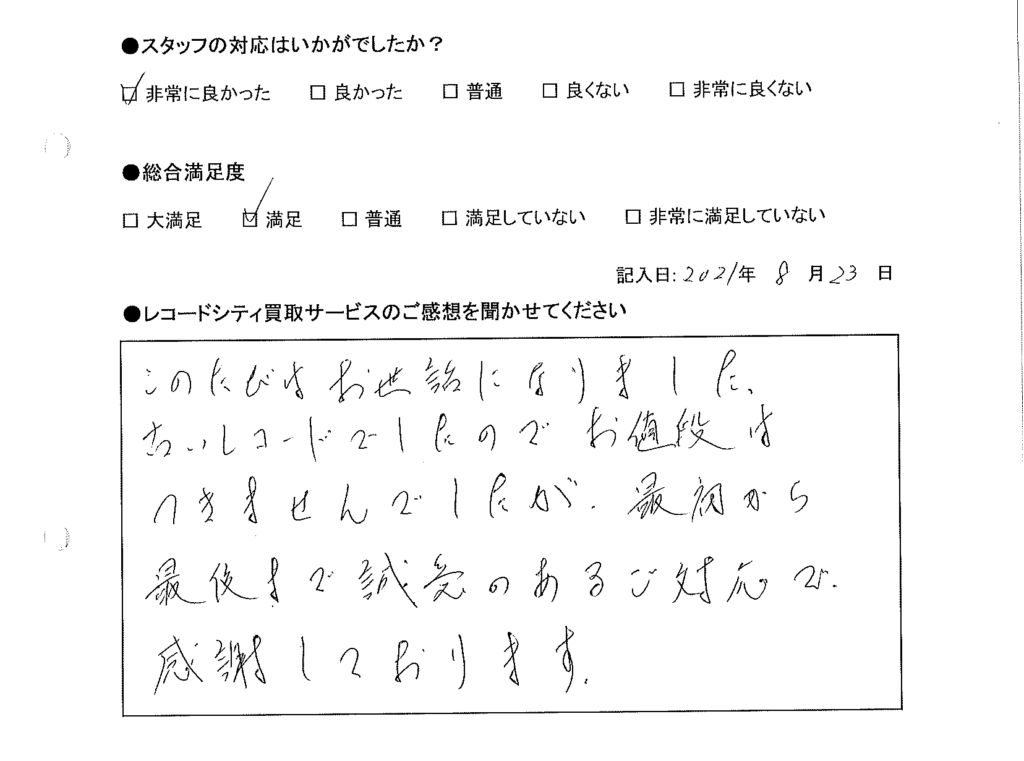 ●スタッフの対応はいかがでしたか？
☑ 非常に良かった □ 良かった □ 普通 □ 良くない □ 非常に良くない
●総合満足度
□ 大満足 ☑ 満足 □ 普通 □ 満足していない □ 非常に満足していない
記入日: 2021年 8 月 23 日
●レコードシティ買取サービスのご感想を聞かせてください
このたびはお世話になりました、
古いレコードでしたのでお値段は
つきませんでしたが、最初から
最後まで誠受のあるご対応で、
感謝しております。